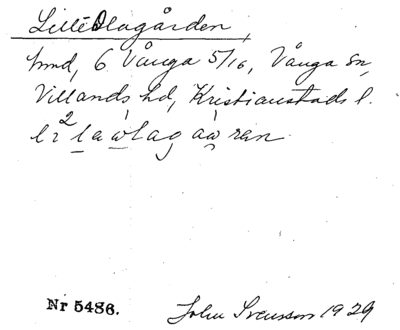 Lille Olagården,
hmd, 6 Vånga 5/16, Vånga sn,
Villands hd, Kristianstads l.
Nr 5486.
John Svensson 1929